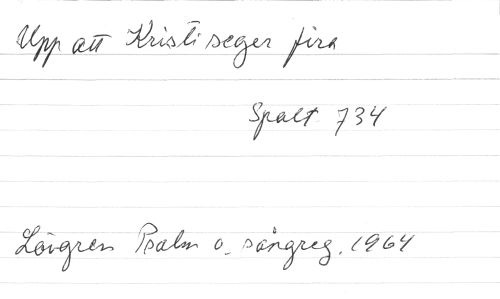 Upp att Kristi seger fira
Spalt 734
Lövgren Psalm o. sångreg. 1964